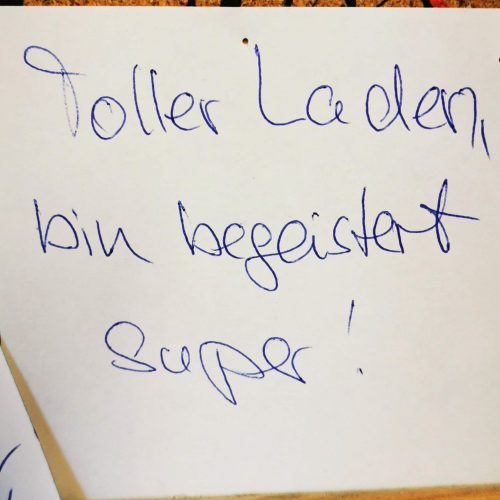 Toller Laden,
bin begeistert
super!